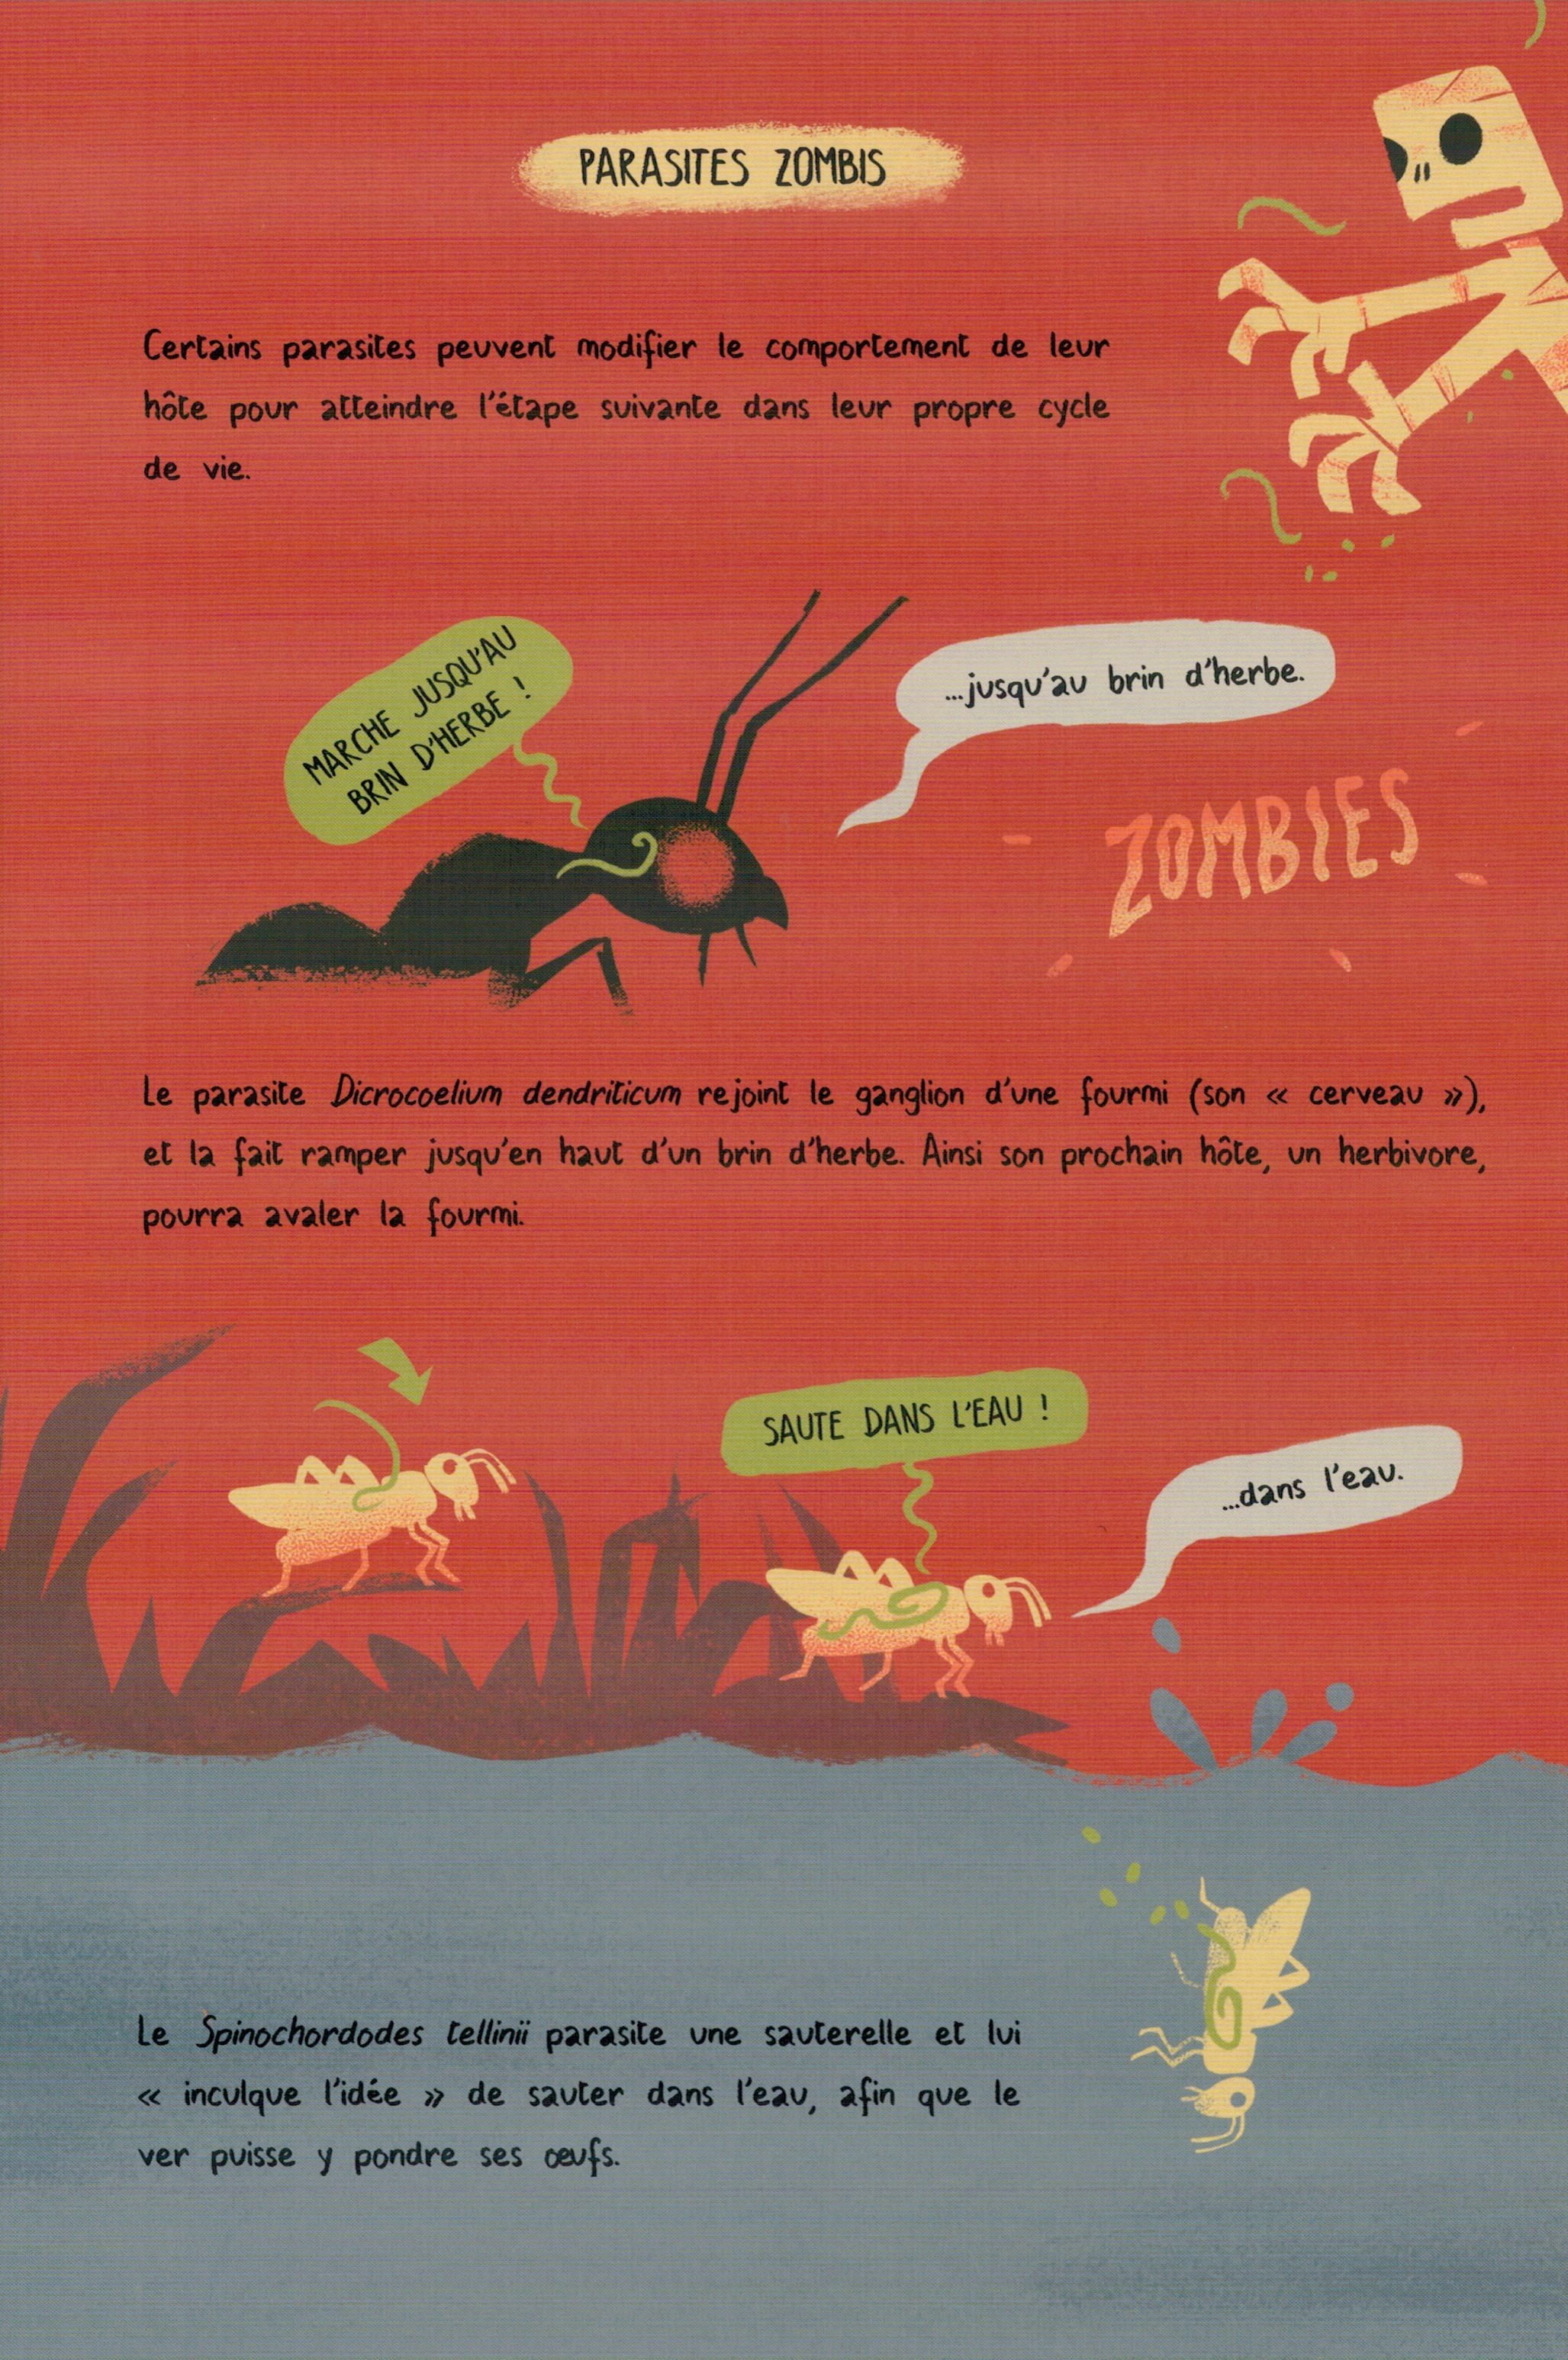 PARASITES ZOMBIS
Certains parasites peuvent modifier le comportement de leur
hôte pour atteindre l'étape suivante dans leur propre cycle
de vie.
MARCHE JUSQU'AU
BRIN D'HERBE !
...jusqu'au brin d'herbe.
ZOMBIES
Le parasite Dicrocoelium dendriticum rejoint le ganglion d'une fourmi (son « cerveau »),
et la fait ramper jusqu'en haut d'un brin d'herbe. Ainsi son prochain hôte, un herbivore,
pourra avaler la fourmi.
SAUTE DANS L'EAU !
...dans l'eau.
Le Spinochordodes tellinii parasite une sauterelle et lui
« inculque l'idée » de sauter dans l'eau, afin que le
ver puisse y pondre ses œufs.